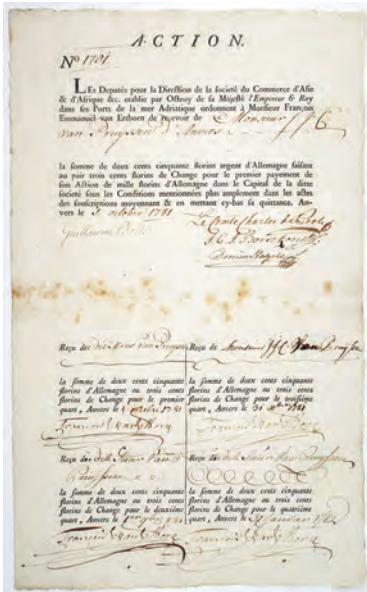 ACTION.
N° 1701
LEs Deputés pour la Direction de la societé du Commerce d'Asie
& d'Afrique &c. etablie par Octroy de sa Majesté l'Empereur & Roy
dans ses Ports de la mer Adriatique ordonnent à Monsieur François
Emmanuel van Ertborn de recevoir de Monsieur J. J. C.
van Pruyssen d'Anvers
la somme de deux cents cinquante florins argent d'Allemagne faisant
au pair trois cents florins de Change pour le premier payement de
son Action de mille florins d'Allemagne dans le Capital de la dite
societé sous les Conditions mentionnées plus amplement dans les actes
des souscriptions moyennant & en mettant cy-bas sa quittance. An-
vers le 2 octobre 1781
Le Comte Charles de Proli
Guillaume Bolts
Reçu de
la somme de deux cents cinquante
florins d'Allemagne ou trois cents
florins de Change pour le premier
quart, Anvers le 1781
Reçu de Monsieur
la somme de deux cents cinquante
florins d'Allemagne ou trois cents
florins de Change pour le troisième
quart, Anvers le 31 1781
Reçu de
la somme de deux cents cinquante
florins d'Allemagne ou trois cents
florins de Change pour le deuxième
quart, Anvers le
Reçu de
la somme de deux cents cinquante
florins d'Allemagne ou trois cents
florins de Change pour le quatrième
quart, Anvers le 31 Janvier 1782